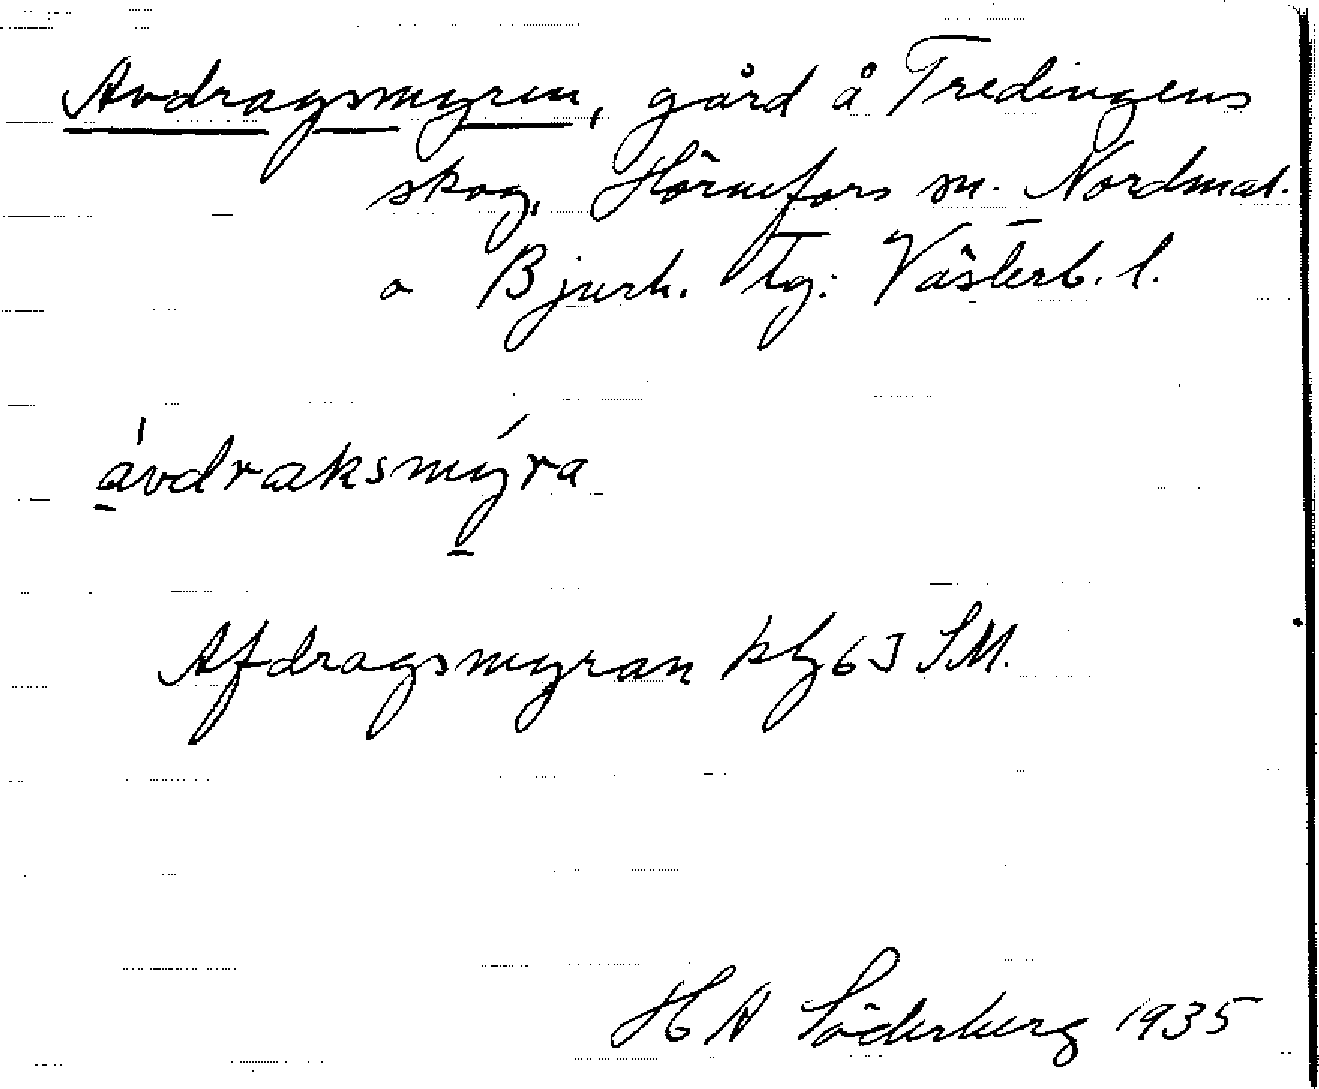 Avdragsmyren, gård å Tredingens
skog, Hörnefors sn. Nordmal.
o Bjurh. tg: Västerb. l.
ávdraksmýra
Afdragsmyran 63 SM.
H A Söderberg 1935